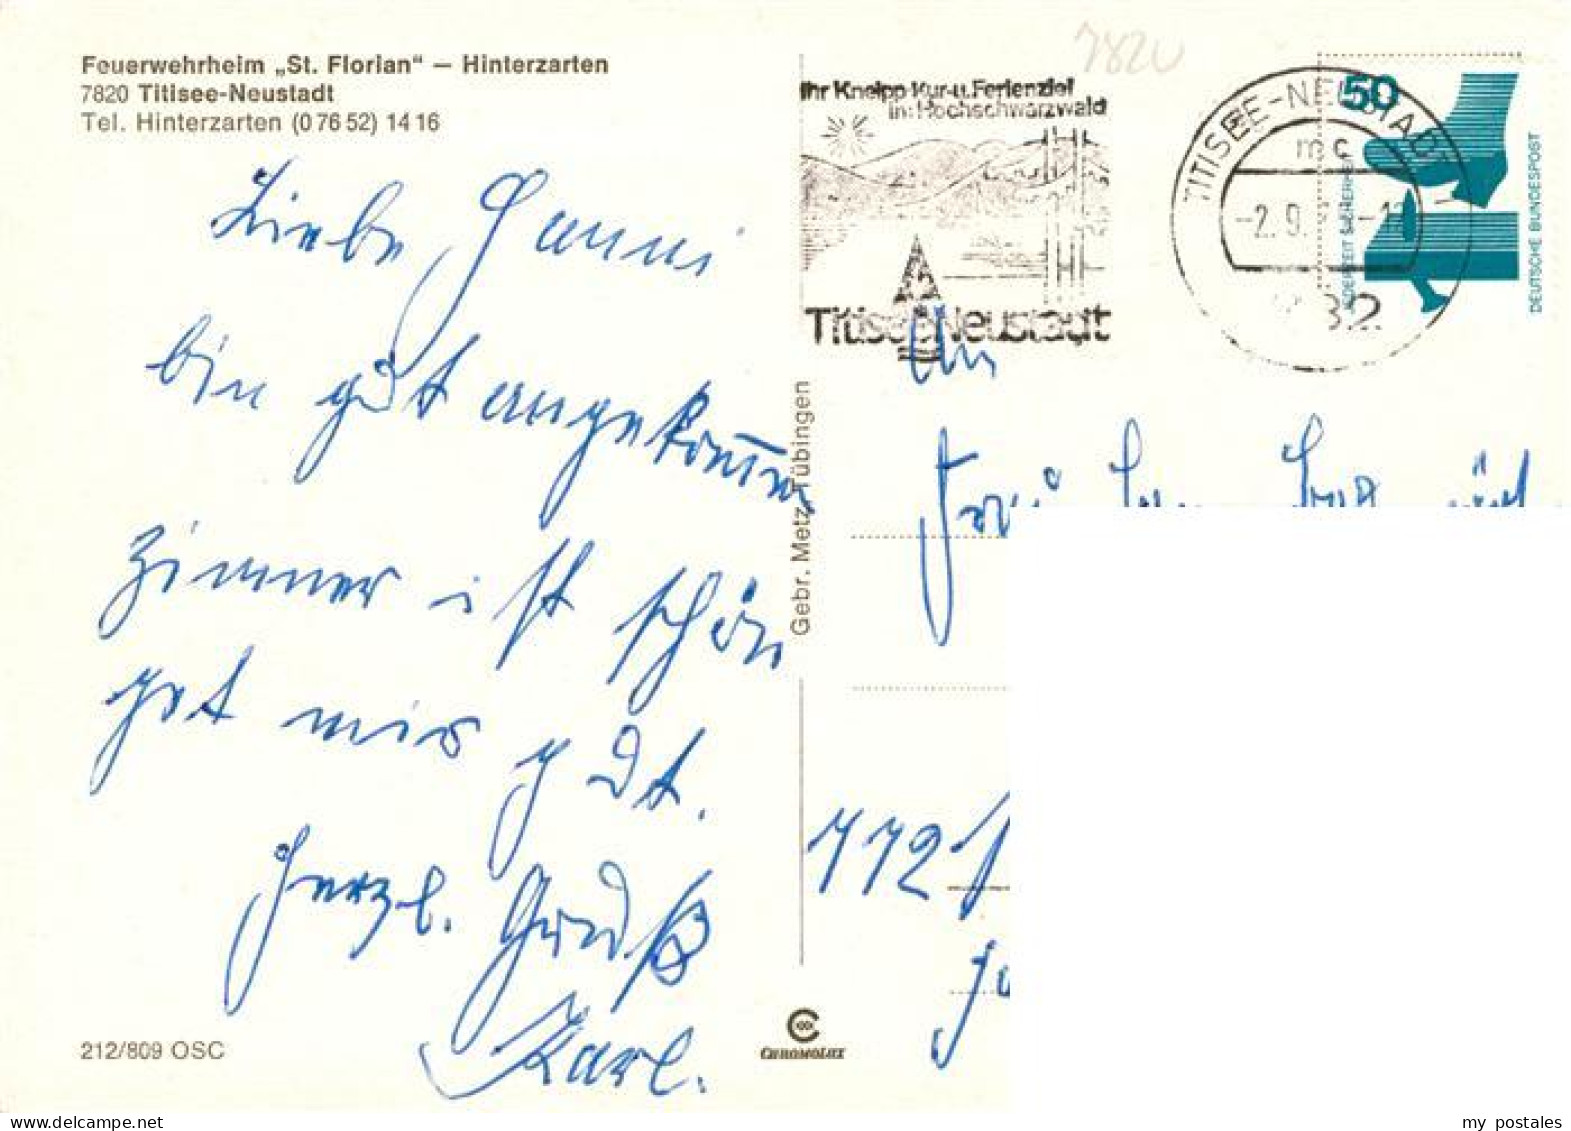 Feuerwehrheim „St. Florian“ — Hinterzarten
7820 Titisee-Neustadt
Tel. Hinterzarten (0 76 52) 14 16
Liebe Hanni
bin gut angekommen
Zimmer ist schön
geht mir gut.
Herzl. Gruß
Karl.
212/809 OSC
Gebr. Metz, Tübingen
CHROMOLUX
7820
Ihr Kneipp-Kur-u. Ferienziel
im Hochschwarzwald
Titisee-Neustadt
TITISEE-NEUSTADT
mc
-2.9.
50
JEDERZEIT SICHERHEIT
DEUTSCHE BUNDESPOST
An
7721
my postales